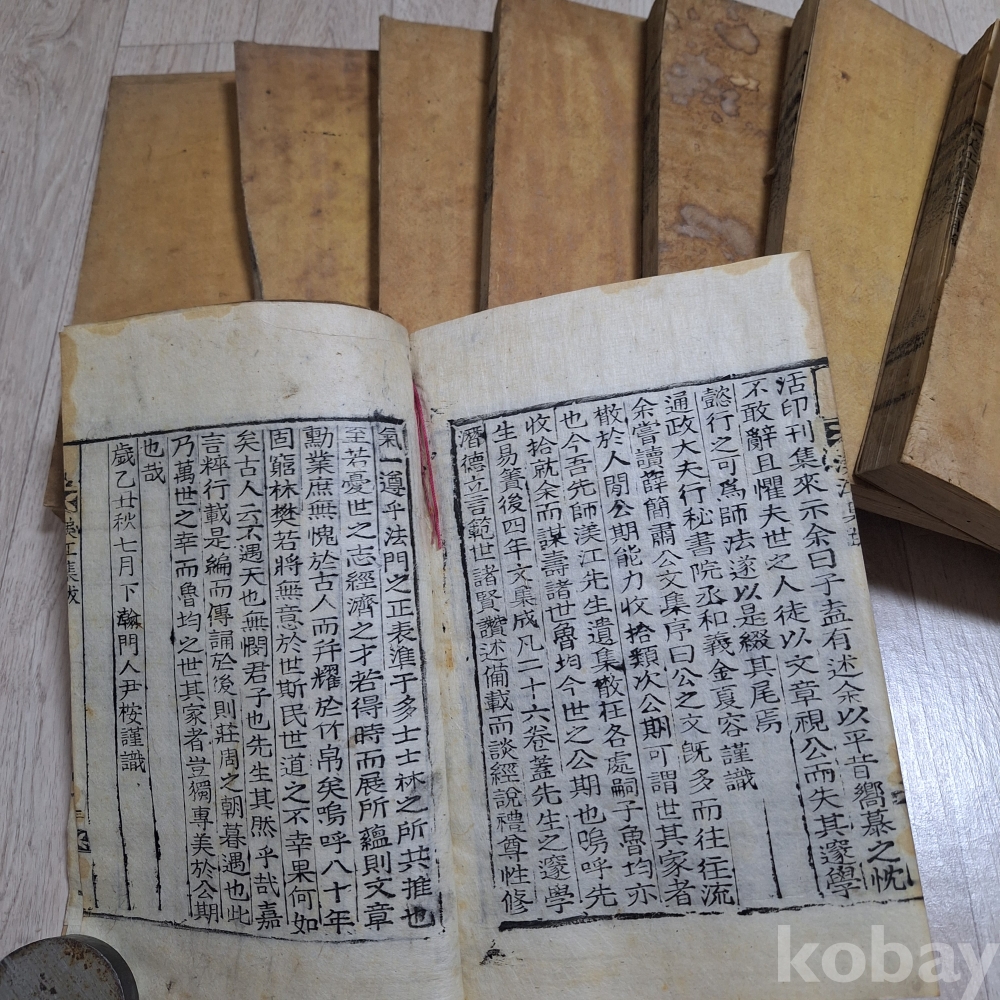 活印刊集來示余曰子盍有述余以平昔嚮慕之忱
不敢辭且懼夫世之人徒以文章視公而失其邃學
懿行之可爲師法遂以是綴其尾焉
通政大夫行秘書院丞和義金夏容謹識
余嘗讀薛簡肅公文集序曰公之文旣多而往往流
散於人間公期能力收拾類次公期可謂世其家者
也今吾先師渼江先生遺集散在各處嗣子魯均亦
收拾就余而謀壽諸世魯均今世之公期也嗚呼先
生易簀後四年文集成凡二十六卷蓋先生之邃學
潛德立言範世諸賢讚述備載而談經說禮尊性修
氣一遵乎法門之正表準于多士士林之所共推也
至若憂世之志經濟之才若得時而展所蘊則文章
勳業庶無愧於古人而幷耀於竹帛矣嗚呼八十年
固窮林樊若將無意於世斯民世道之不幸果何如
矣古人云不遇天也無憫君子也先生其然乎哉嘉
言粹行載是編而傳誦於後則莊周之朝暮遇也此
乃萬世之幸而魯均之世其家者豈獨專美於公期
也哉
歲乙丑秋七月下澣門人尹桉謹識
渼江集跋
kobay